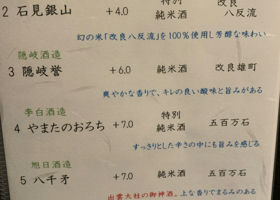 特別 改良
2 石見銀山 +4.0 純米酒 八反流
幻の米「改良八反流」を100%使用し芳醇な味わい
隠岐酒造
3 隠岐誉 +6.0 純米酒 改良雄町
爽やかな香りで、キレの良い酸味と旨みがある
李白酒造 特別
4 やまたのおろち +7.0 純米酒 五百万石
すっきりとした辛さの中にも旨みを感じる
旭日酒造
5 八千矛 +7.0 純米酒 五百万石
出雲大社の御神酒。上な香りでまるみのある